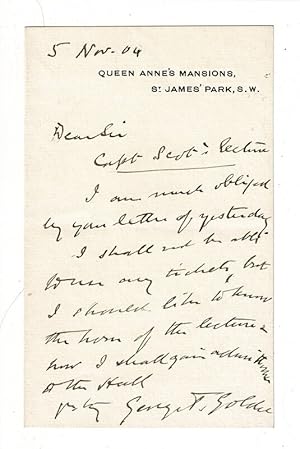 5 Nov. 04
QUEEN ANNE'S MANSIONS,
ST JAMES' PARK, S.W.
Dear Sir
Capt Scott's lecture
I am much obliged
by your letter of yesterday
I shall not be able
to use any tickets, but
I should like to know
the hour of the lecture &
how I shall gain admittance
to the Hall
George T. Goldie